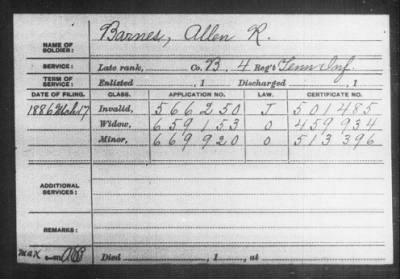 NAME OF SOLDIER: Barnes, Allen R.
SERVICE: Late rank, Co. B, 4 Reg't Tenn Inf.
TERM OF SERVICE: Enlisted , 1 Discharged , 1
DATE OF FILING. CLASS. APPLICATION NO. LAW. CERTIFICATE NO.
1886 Mch 17 Invalid, 566250 J 501485
Widow, 659153 O 459934
Minor, 669920 O 513396
ADDITIONAL SERVICES:
REMARKS:
Died , 1 , at